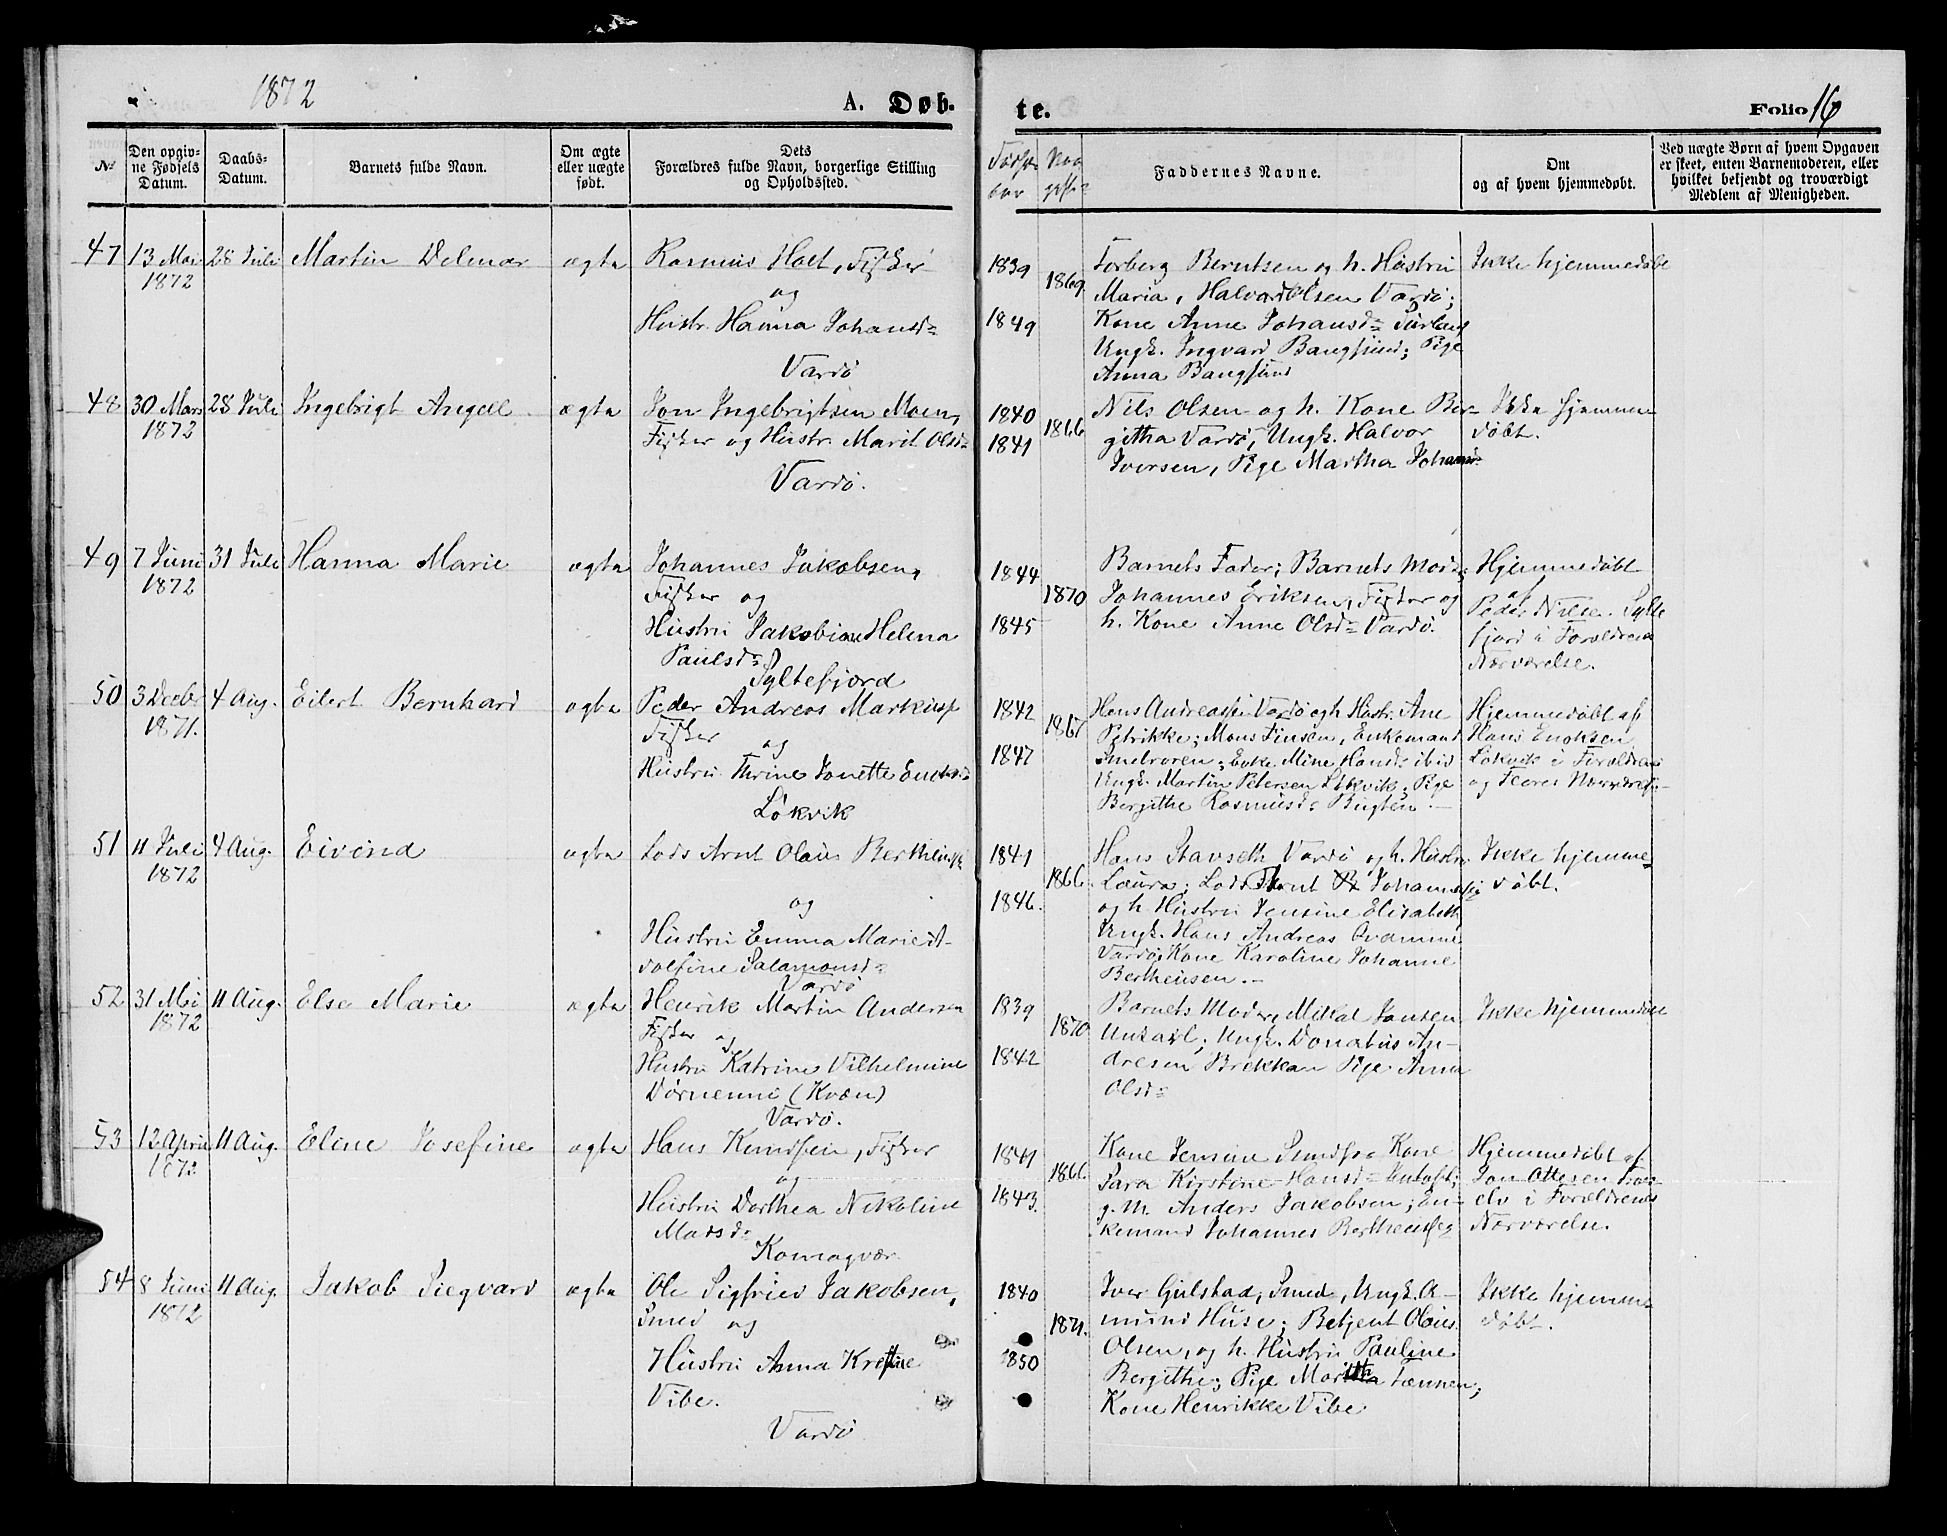 1872
A. Døb-
te.
Folio 16
№
Den opgiv-
ne Fødsels
Datum.
Daabs-
Datum.
Barnets fulde Navn.
Om ægte
eller uægte
født.
Dets
Forældres fulde Navn, borgerlige Stilling
og Opholdssted.
Faddernes Navne.
Om
og af hvem hjemmedøbt.
Ved uægte Børn af hvem Opgaven
er skeet, enten Barnemoderen, eller
hvilket bekjendt og troværdigt
Medlem af Menigheden.
47
13 Mai
1872
28 Juli
Martin Delmar
ægte
Rasmus Holt, Fisker
og
Hustr. Hanna Johansd=
Vardø
1839
1849
1869.
Torberg Berntsen og h. Hustru
Maria, Halvard Olsen Vardø;
Kone Anne Johansd=
Ungk. Ingvard Bangsund; Pige
Anna Bangsund
Ikke hjemmedøbt
48
30 Mars
1872
28 Juli
Ingebrigt Angell
ægte
Jon Ingebrigtsen Moen,
Fisker og Hustr. Marit Olsd=
Vardø.
1840
1841
1866
Nils Olsen og h. Kone Ber-
githa Vardø, Ungk. Halvor
Iversen, Pige Martha Johansd=
Ikke hjemme-
døbt.
49
7 Juni
1872
31 Juli
Hanna Marie
ægte
Johannes Jakobsen,
Fisker og
Hustru Jakobine Helena
Paulsd=
Syltefjord
1844
1845
1870
Barnets Fader; Barnets Moder;
Johannes Eriksen, Fisker og
h. Kone Anne Olsd= Vardø.
Hjemmedøbt
af
Peder Nilse. Sylte
fjord i Forældrenes
Nærværelse.
50
3 Decbr
1871.
4 Aug.
Eilert Bernhard
ægte
Peder Andreas Markuss
Fisker
og
Hustru Thrine Jonette Enoksd=
Løkvik
1842
1847
1867
Hans Andreass Vardø og h. Hustr. Ane
Petrikke; Mons Finsen, Enkemand
Smelroren; Enke Mine Hansd= ibid
Ungk. Martin Petersen Løkvik; Pige
Bergithe Rasmusd= Bugten.
Hjemmedøbt af
Hans Enoksen
Løkvik i Forældrenes
og Fleres Nærværelse
51
11 Juli
1872
4 Aug.
Eivind
ægte
Lods Arnt Olaus Bertheusen
og
Hustru Emma Marie A-
dolfine Salamonsd=
Vardø
1841
1846.
1866.
Hans Stavseth Vardø og h. Hustru
Laura; Lods Arnt Johannesen
og h Hustru Jensine Elisabeth
Ungk. Hans Andreas Kvamme
Vardø; Kone Karoline Johanne
Bertheusen.
Ikke hjemme-
døbt.
52
31 Mai
1872
11 Aug.
Else Marie
ægte
Henrik Martin Andersen
Fisker og
Hustru Katrine Vilhelmine
Dørnenni (Kvæn)
Vardø.
1839
1842
1870
Barnets Moder, Mikal Jansen
Ungk. Donatus An-
dresen Brekkan Pige Anna
Olsd=
Ikke hjemmedøbt
53
12 April
1872
11 Aug.
Eline Josefine
ægte
Hans Knudsen, Fisker
og
Hustru Dorthea Nikoline
Madsd=
Komagvær
1841
1843.
1866.
Kone Jensine Kone
Sara Kirstine Hansd=
g. M. Anders Jakobsen; En-
kemand Johannes Bertheusen
Hjemmedøbt af
Jon Ottesen
elv i Forældrenes
Nærværelse.
54
8 Juni
1872
11 Aug.
Jakob Siegvard
ægte
Ole Sigfried Jakobsen,
Smed og
Hustru Anna Kristine
Vibe.
Vardø
1840
1850
1871.
Iver Gulstad, Smed, Ungk. A-
mund Huse; Betjent Olaus
Olsen, og h. Hustru Pauline
Bergithe; Pige Martha
Kone Henrikke Vibe
Ikke hjemme-
døbt.